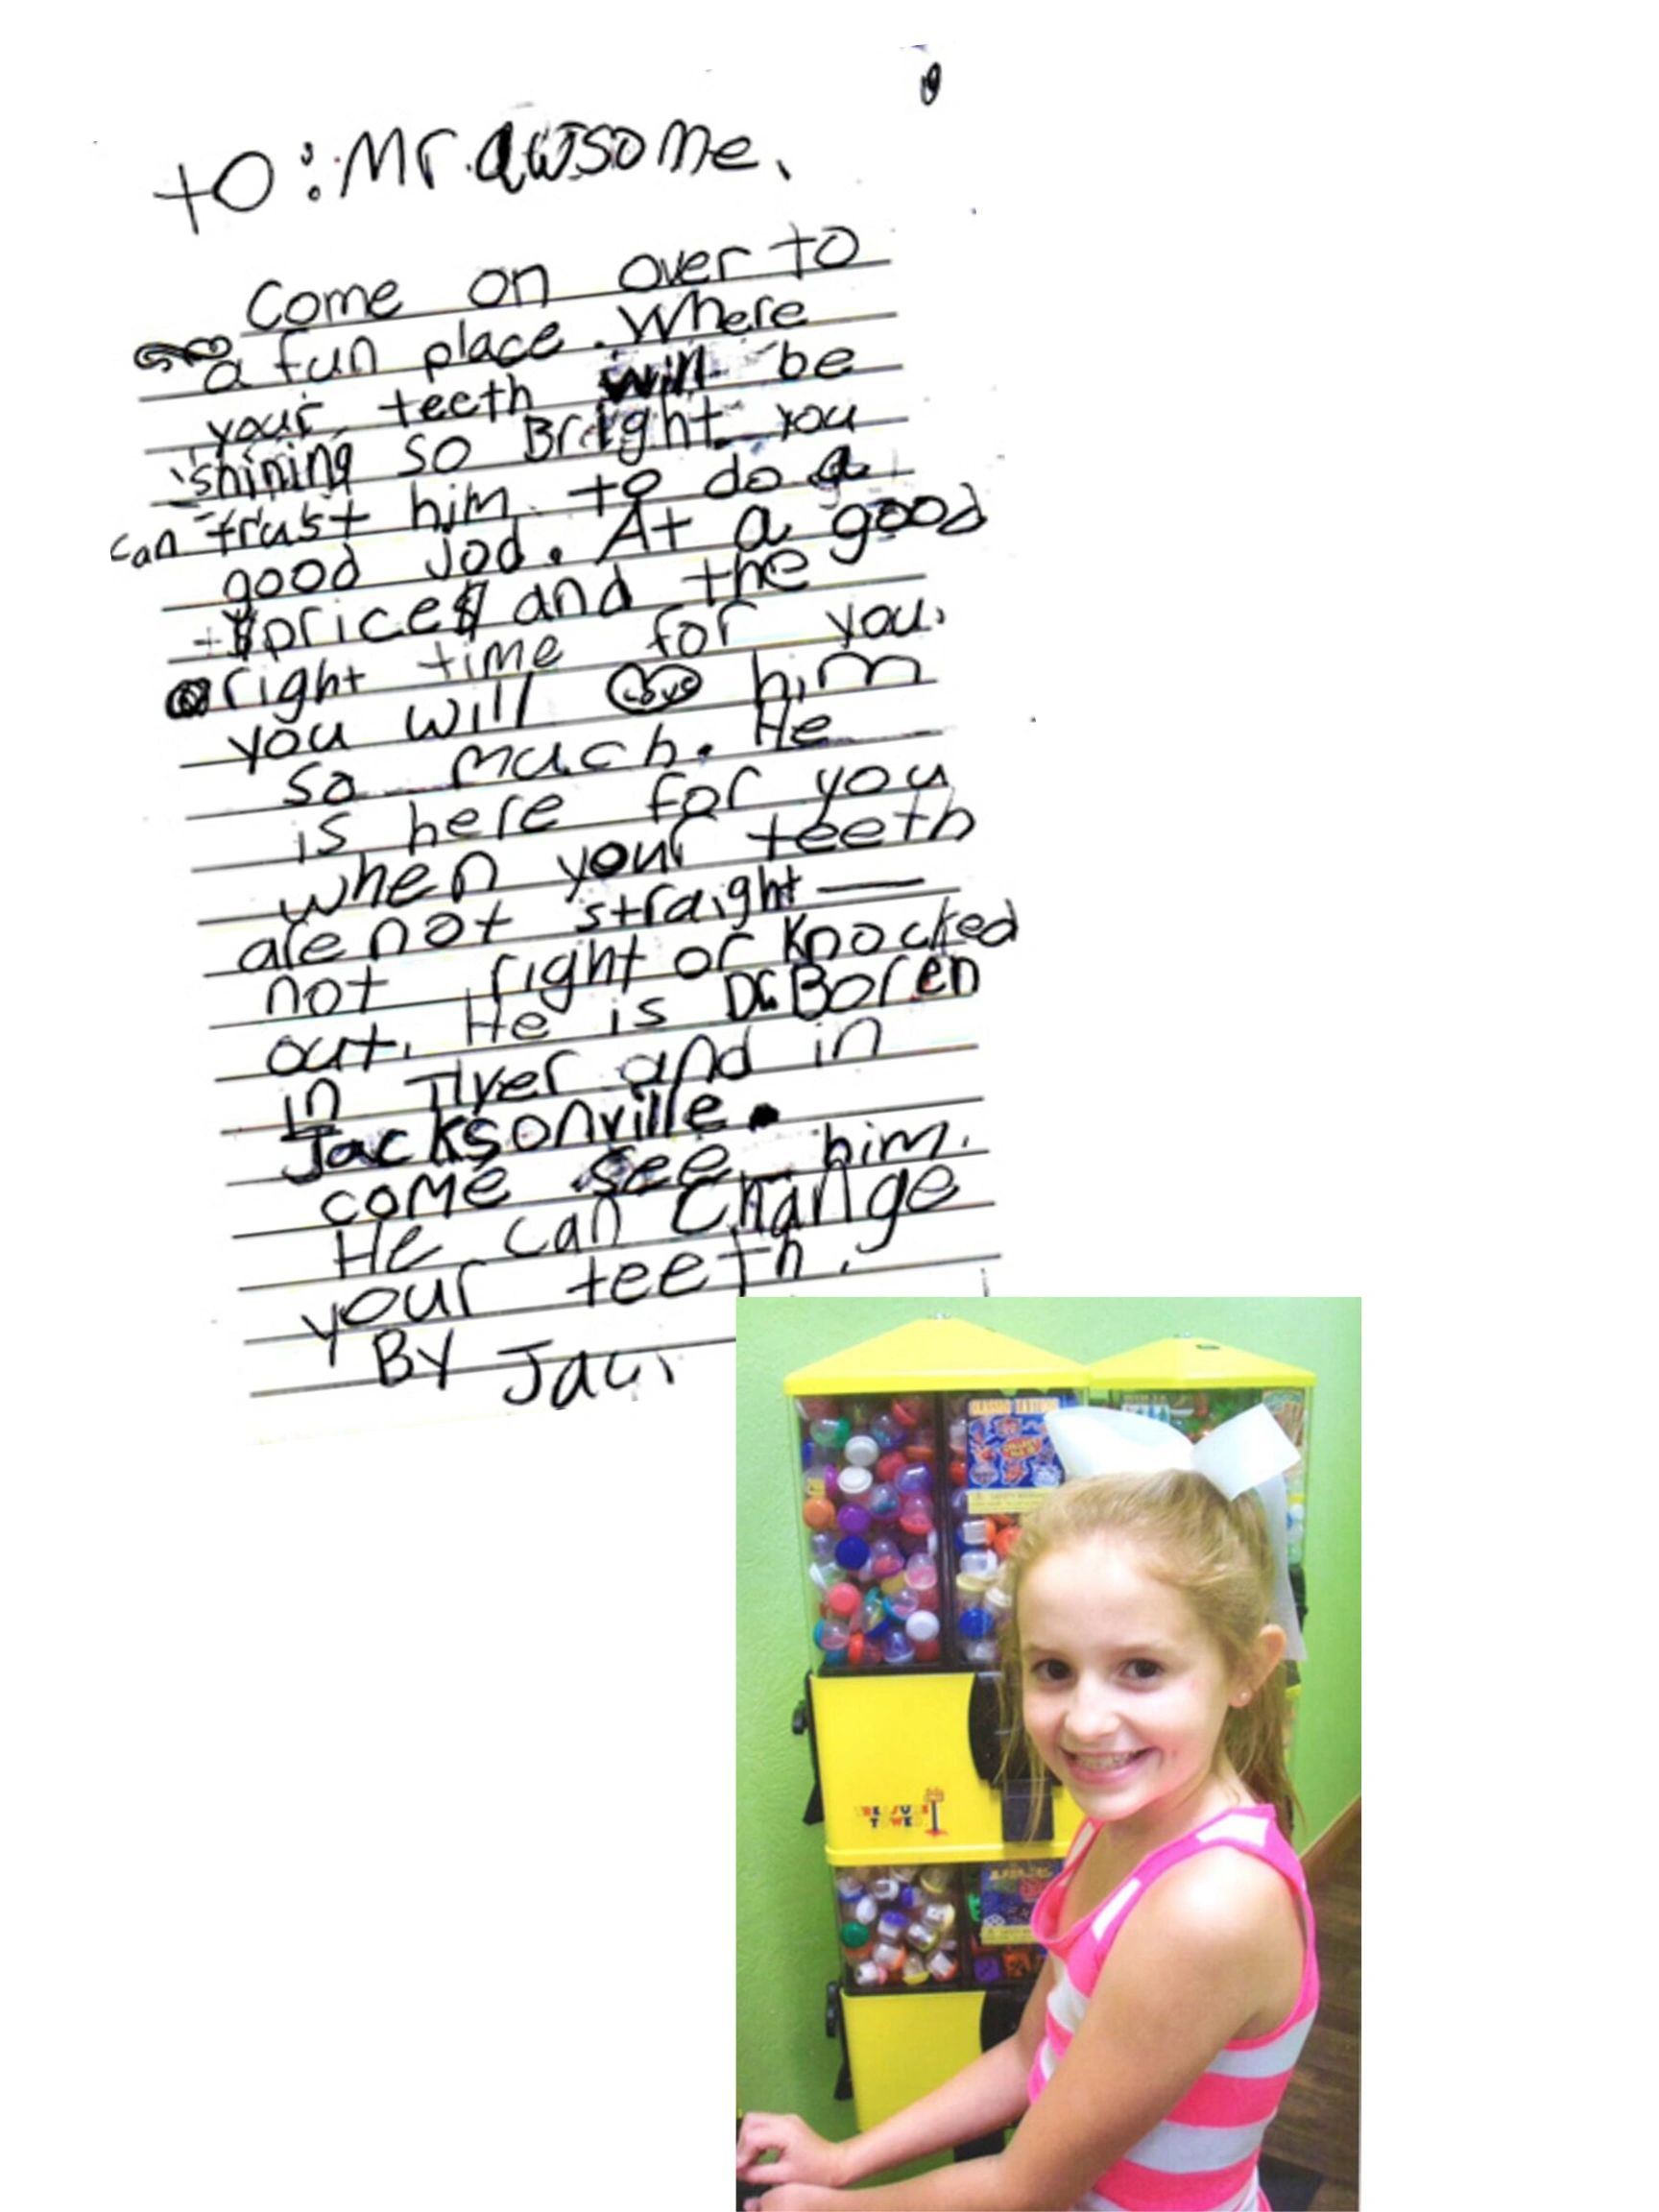 to: Mr. awsome,
Come on over to
a fun place. Where
your teeth will be
shining so Bright you
can trust him to do a
good jod. At a good
$price$ and the
right time for you.
you will love him
so much. He
is here for you
when your teeth
are not straight —
not right or knocked
out. He is Dr. Boren
in Tlyer and in
Jacksonville.
come see him.
He can Change
your teeth.
BY
TREASURE
TOWER